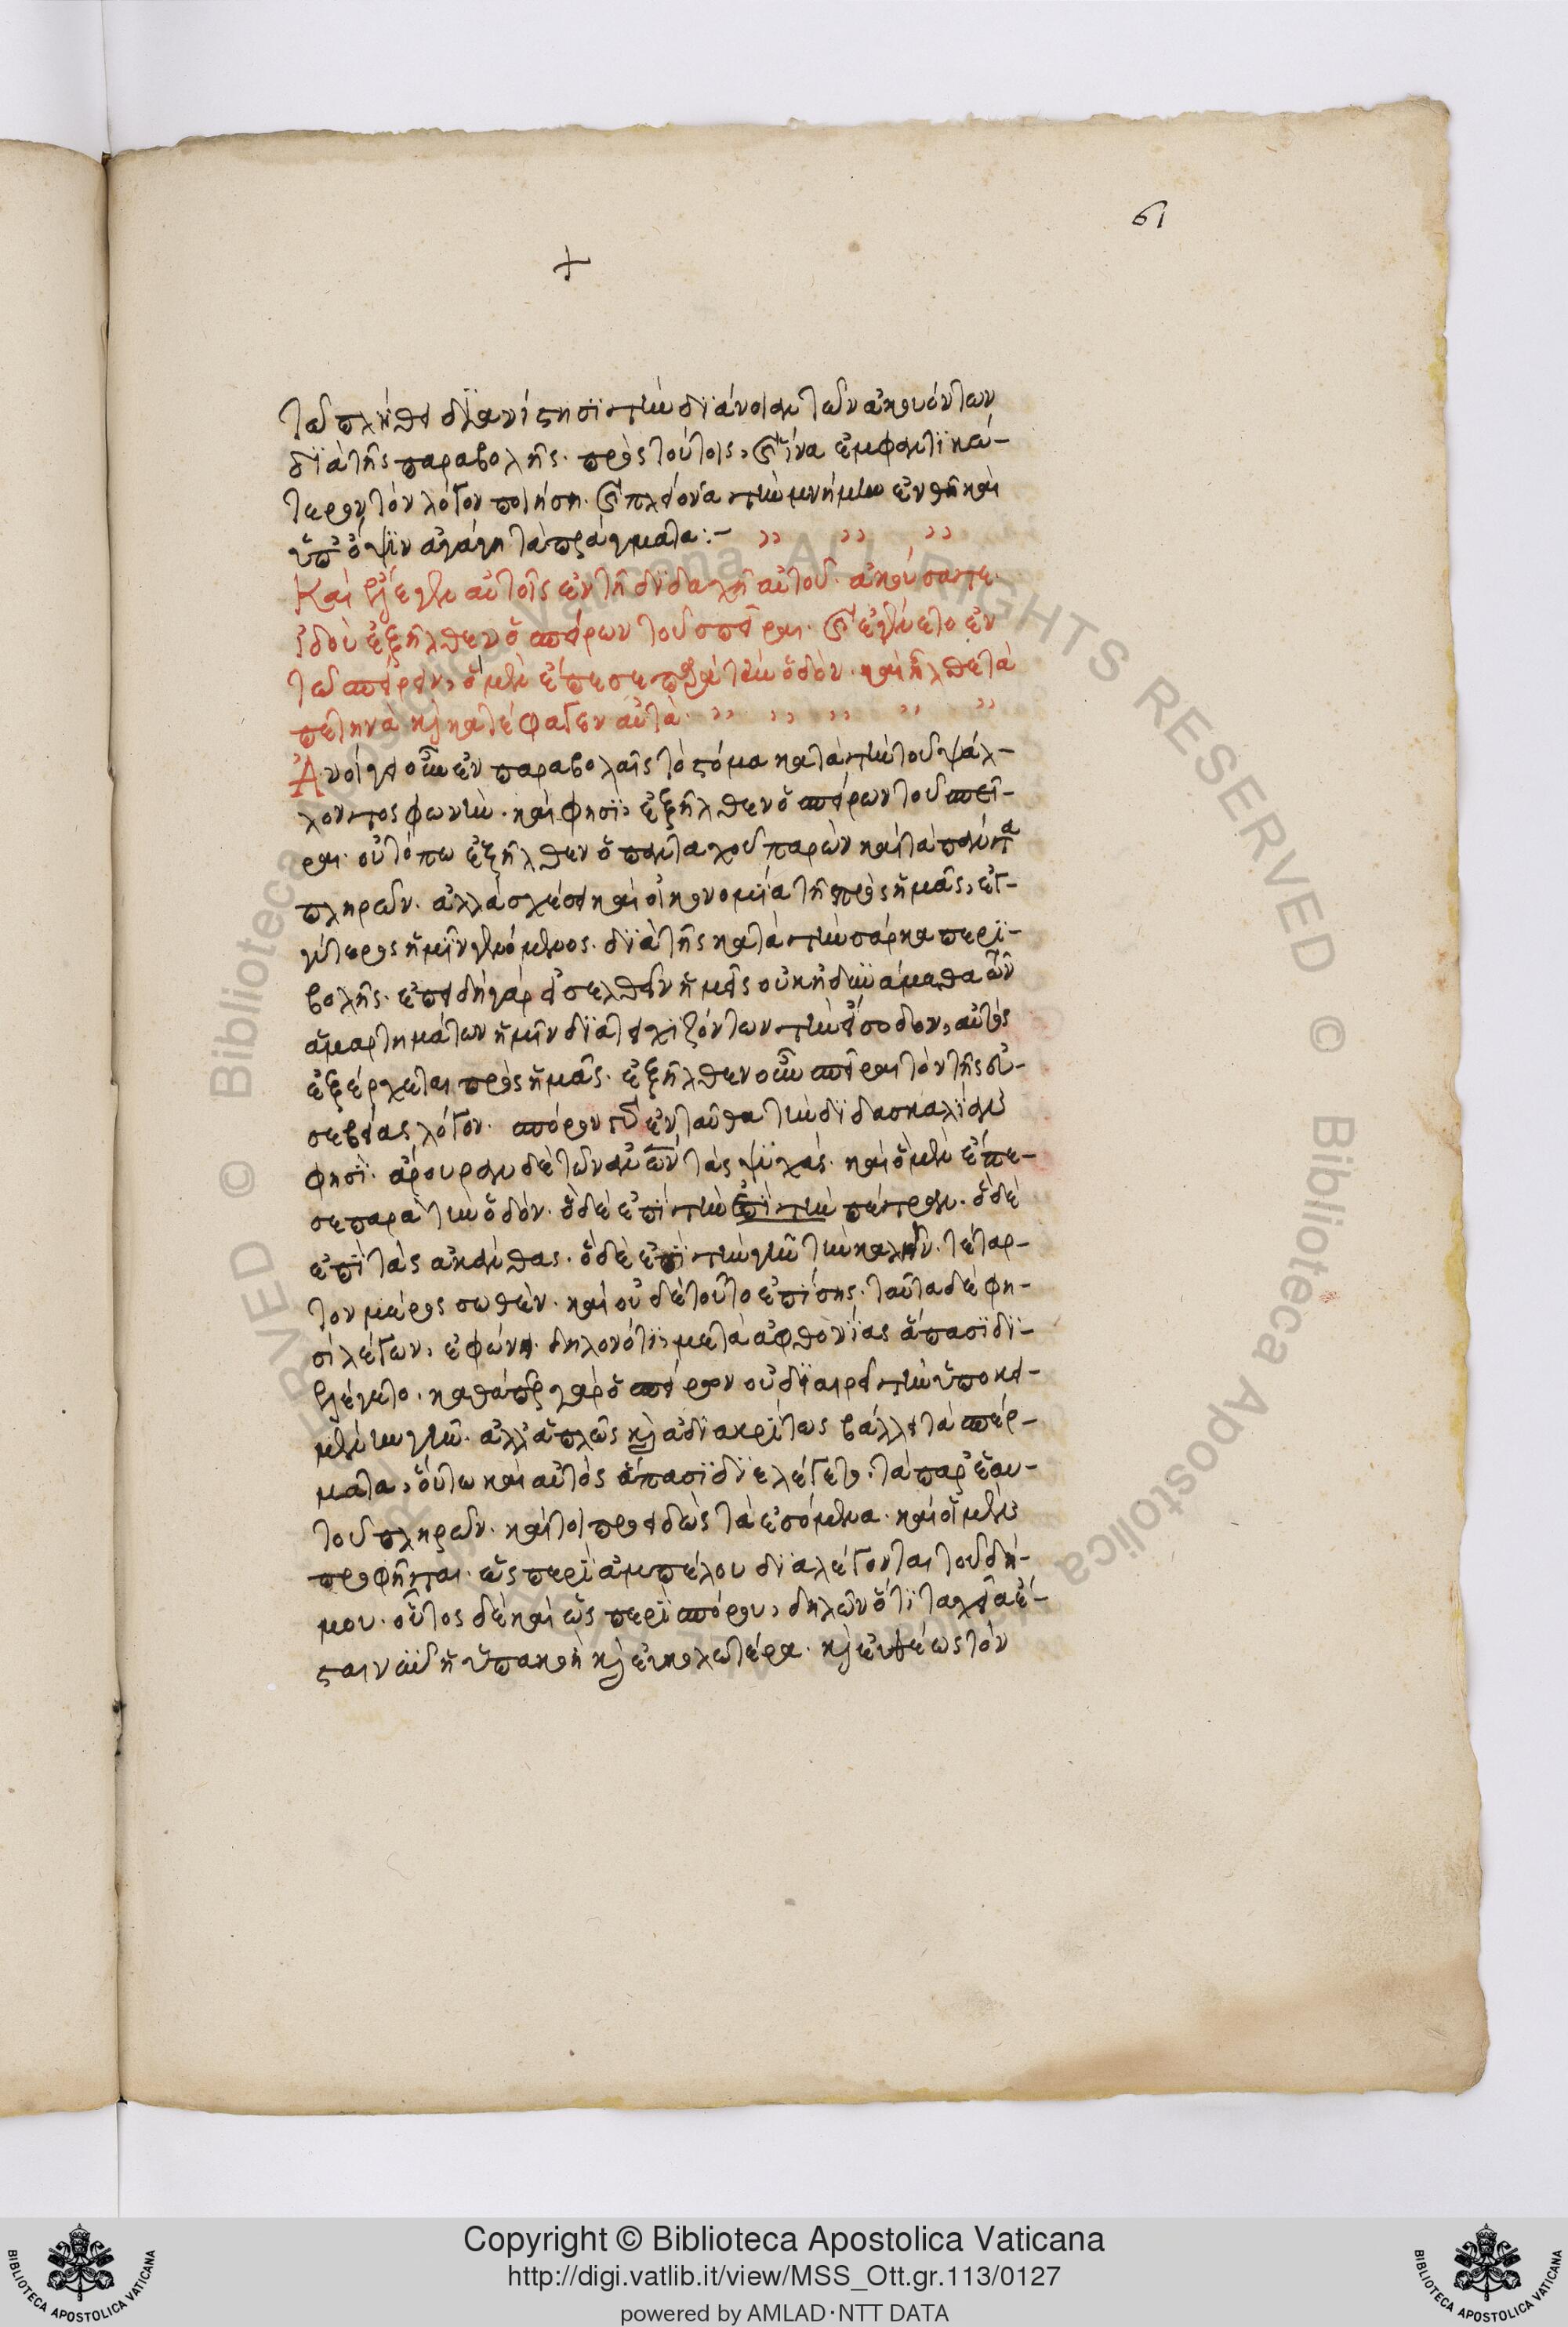 61
+
τῶ πλήθει διανίστησι τὴν διάνοιαν τῶν ἀκουόντων
διὰ τῆς παραβολῆς. πρὸς τούτοις, καὶ ἵνα ἐμφαντικώ-
τερον τὸν λόγον ποιήση. καὶ πλείονα τὴν μνήμην ἐνθῆ καὶ
ὑπ' ὄψιν ἀγάγη τὰ πράγματα :-
Καὶ ἔλεγεν αὐτοῖς ἐν τῆ διδαχῆ αὐτοῦ. ἀκούσατε.
ἰδοὺ ἐξῆλθεν ὁ σπείρων τοῦ σπεῖραι. καὶ ἐγένετο ἐν
τῶ σπείρειν, ὃ μὲν ἔπεσε παρὰ τὴν ὁδόν. καὶ ἦλθε τὰ
πετηνὰ καὶ κατέφαγεν αὐτά.
Ἀνοίγει οὖν ἐν παραβολαῖς τὸ στόμα κατὰ τὴν τοῦ ψάλ-
λοντος φωνήν. καὶ φησὶ, ἐξῆλθεν ὁ σπείρων τοῦ σπεῖ-
ραι. οὐ τόπω ἐξῆλθεν ὁ πανταχοῦ παρὼν καὶ τὰ πάντα
πληρῶν. ἀλλὰ σχέσει καὶ οἰκονομία τῆ πρὸς ἡμᾶς, ἐγ-
γύτερος ἡμῖν γενόμενος. διὰ τῆς κατὰ τὴν σάρκα περι-
βολῆς. ἐπειδὴ γὰρ εἰσελθεῖν ἡμεῖς οὐκ ἠδυνάμεθα τῶν
ἁμαρτημάτων ἡμῖν διατειχιζόντων τὴν εἴσοδον, αὐτὸς
ἐξέρχεται πρὸς ἡμᾶς. ἐξῆλθεν οὖν σπεῖραι τὸν τῆς εὐ-
σεβείας λόγον. σπόρον γὰρ ἐνταῦθα τὴν διδασκαλίαν
φησὶ. ἄρουραν δὲ τῶν ἀνων τὰς ψυχάς. καὶ ὃ μὲν ἔπε-
σε παρὰ τὴν ὁδόν. ὃ δὲ ἐπὶ τὴν ἐπὶ τὴν πέτραν. ὃ δὲ
ἐπὶ τὰς ἀκάνθας. ὃ δὲ ἐπὶ τὴν γῆν τὴν καλήν. τέταρ-
τον μέρος σωθέν. καὶ οὐδὲ τοῦτο ἐπίσης. ταῦτα δέ φη-
σι λέγων, ἐφώνει. δηλονότι, μετὰ ἀφθονίας ἅπασι δι-
ελέγετο. καθάπερ γὰρ ὁ σπείρων οὐ διαιρεῖ τὴν ὑποκει-
μένην γῆν. ἀλλ' ἁπλῶς καὶ ἀδιακρίτως βάλλει τὰ σπέρ-
ματα, οὕτω καὶ αὐτὸς ἅπασι διελέγετο. τὰ παρ' ἑαυ-
τοῦ πληρῶν. καίτοι προειδὼς τὰ ἐσόμενα. καὶ οἱ μὲν
προφῆται. ὡς περὶ ἀμπέλου διαλέγονται τοῦ δή-
μου. οὗτος δὲ καὶ ὡς περὶ σπόρου, δηλῶν ὅτι ταχεῖα ἔ-
σται νῦν ἡ ὑπακοὴ καὶ εὐκολωτέρα. καὶ εὐθέως τὸν
Copyright © Biblioteca Apostolica Vaticana
http://digi.vatlib.it/view/MSS_Ott.gr.113/0127
powered by AMLAD·NTT DATA